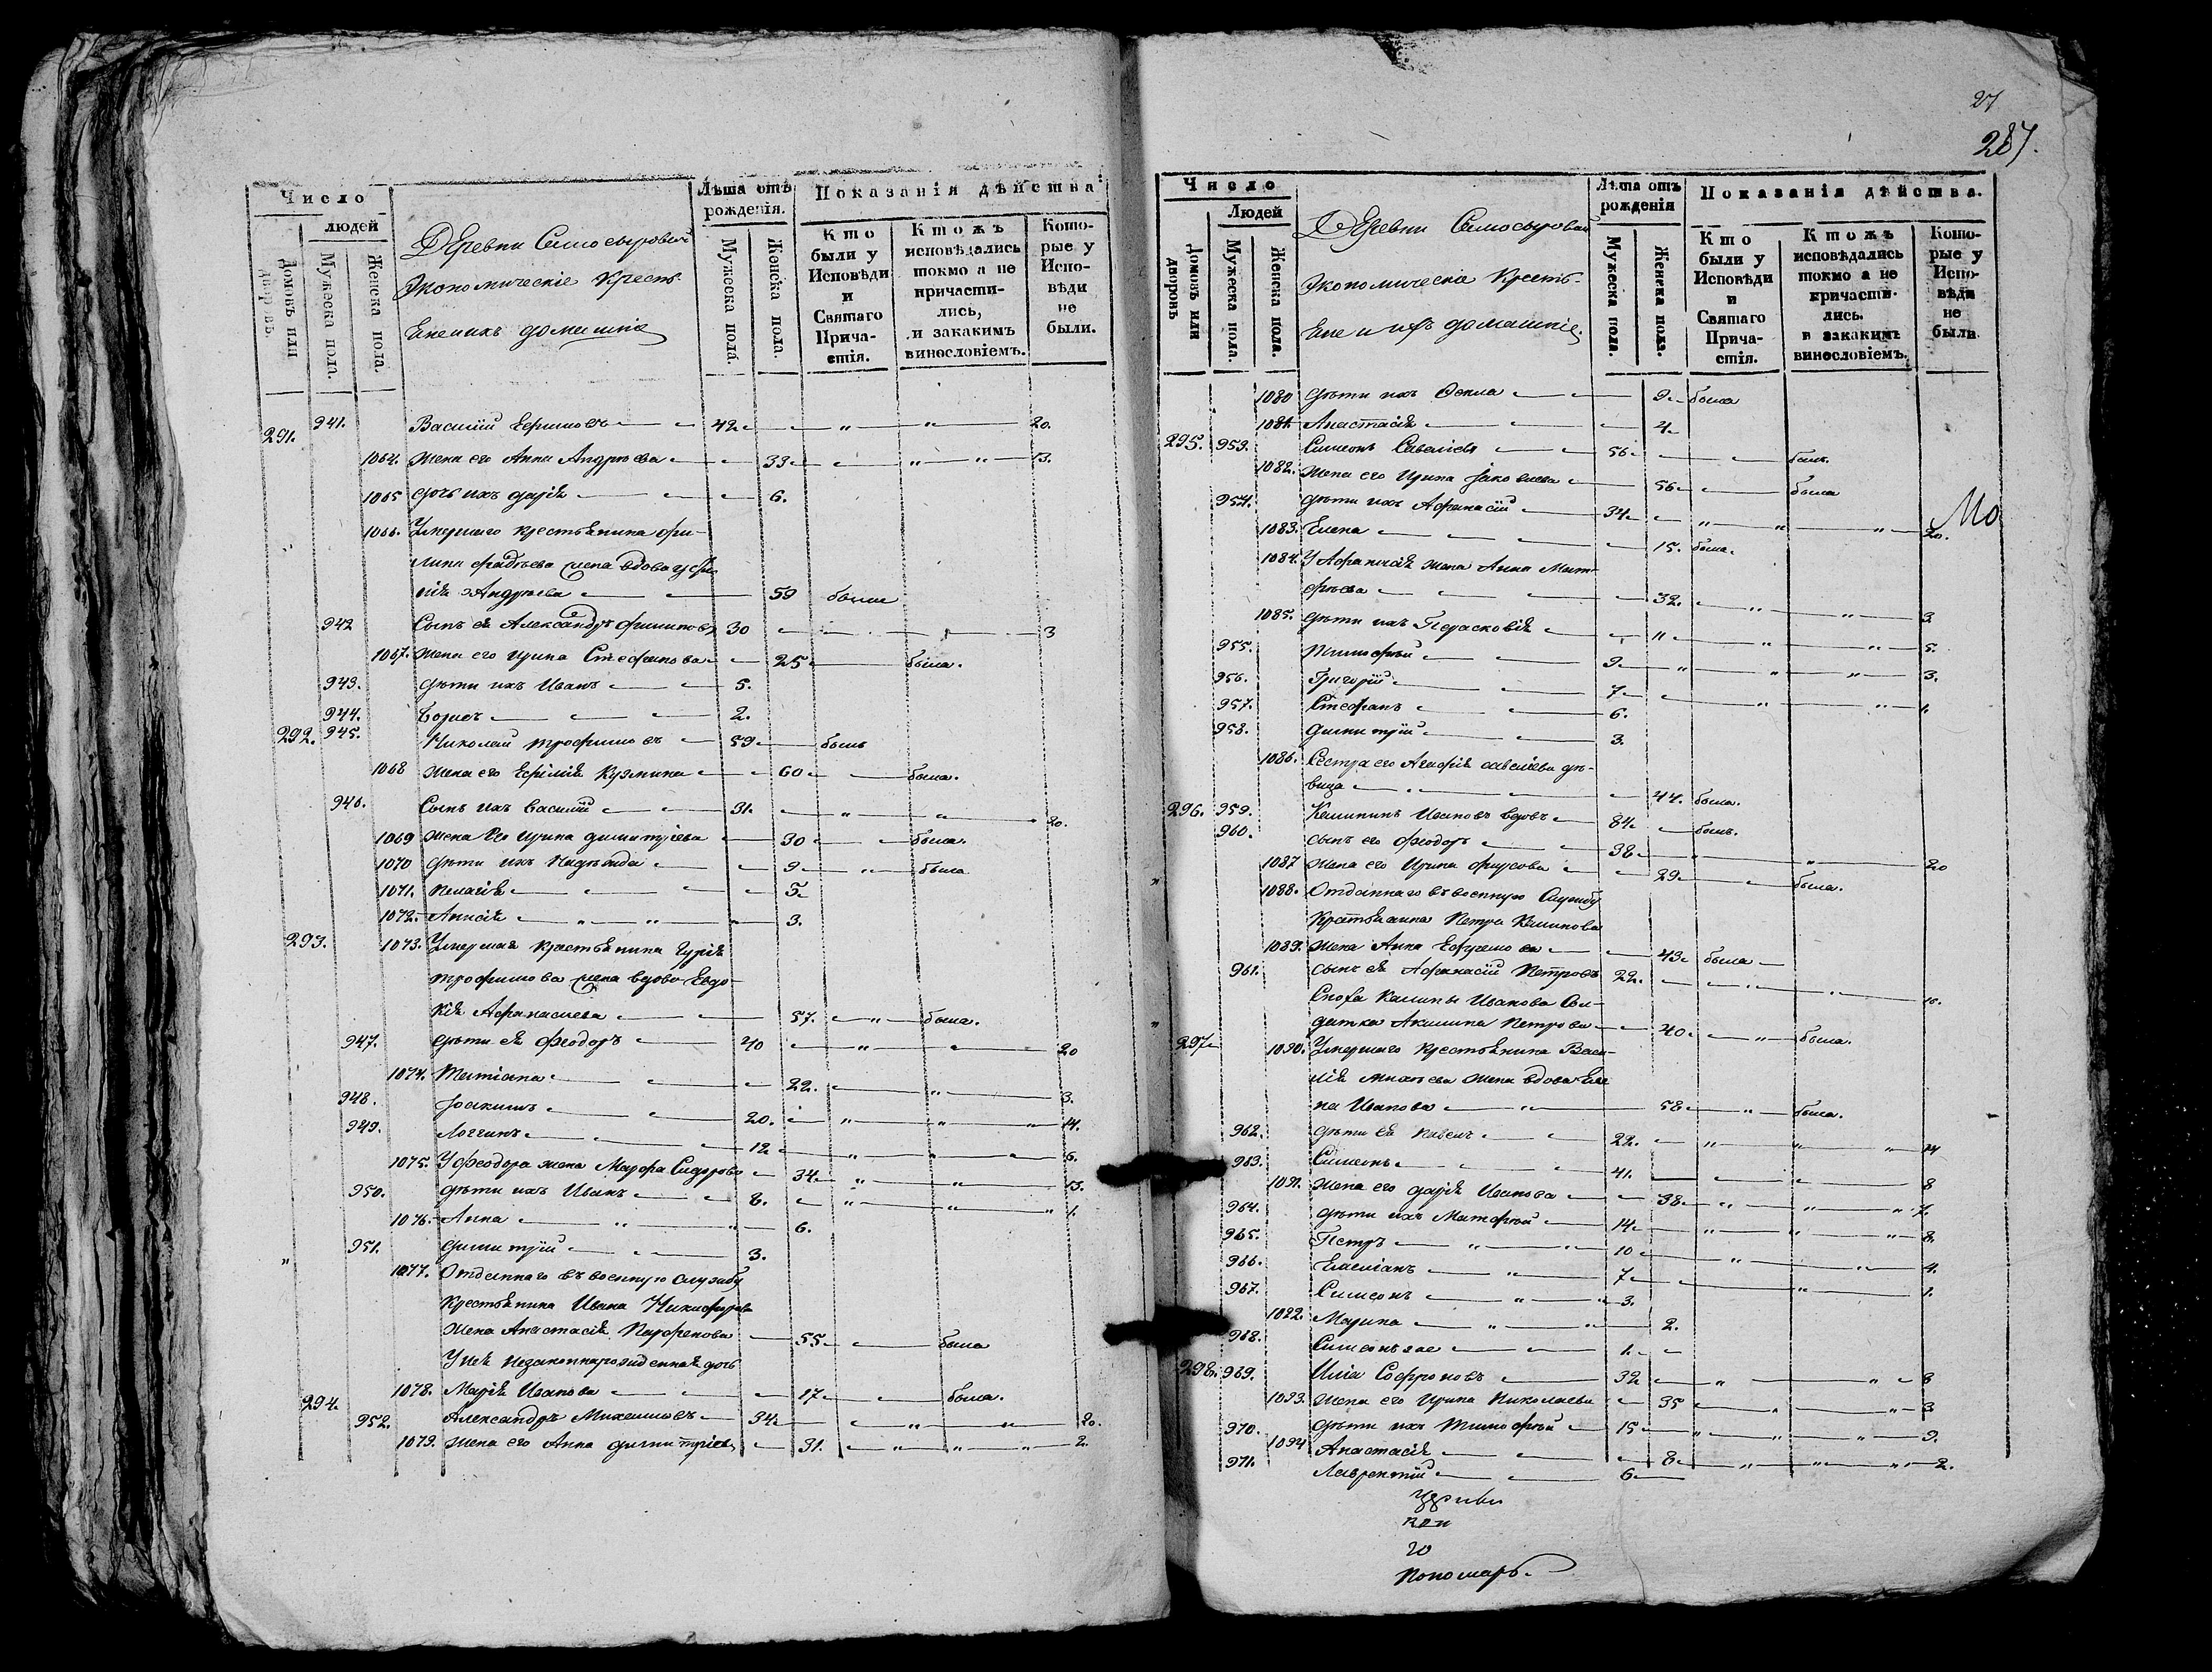 Число
людей
Домовъ или дворовъ.
Мужеска пола.
Женска пола.
Деревни Самосыровой
Экономическіе Кресть-
яне ихъ домашніе
Лѣта отъ рожденія.
Мужеска пола.
Женска пола.
Показанія дѣйства
Кто были у Исповѣди и Святаго Причастія.
Ктожъ исповѣдались токмо а не причастились, и закакимъ винословіемъ.
Которые у Исповѣди не были.
291. 941. Василій Ефимовъ 42 20.
1064. жена его Анна Андреева 33 13.
1065 дочь ихъ Дарія 6.
1066. Умершаго крестьянина Фи-
липа жена вдова
Андреева 59 была
942 Сынъ ея Александръ Филиповъ 30 3
1067. жена его Ирина Стефанова 25 была.
943. дѣти ихъ Иванъ 5.
944. Борисъ 2.
292. 945. Николай Трофимовъ 59 былъ
1068 жена его Кузмина 60 была.
946. Сынъ ихъ Василій 31. 20.
1069 жена его Ирина Димитріева 30 была.
1070 дѣти ихъ Надежда 9 была
1071. Пелагія 5
1072. Анисія 3.
293. 1073. Умершая крестьянина Гурія
Трофимова жена вдова Евдо-
кія Афанасиева 57. была.
947. дѣти ея Феодоръ 40 20
1074. Татіана 22. 3.
948. Іоакимъ 20. 14.
949. Логгинъ 12 6.
1075. У Феодора жена Марфа Сидорова 34 13.
950. дѣти ихъ Иванъ 8. 1.
1076. Анна 6.
951. Димитрій 3.
1077. Отданнаго въ военную службу
крестьянина Ивана Никифорова
жена Анастасія Парфенова 55 была
У нея незаконнорожденная дочь
1078. Марія Иванова 17 была.
294. 952. Александръ Михаиловъ 34 20.
1079. жена его Анна Димитріева 31. 2.
27
287.
Число
Людей
Домовъ или дворовъ
Мужеска пола.
Женска пола.
Деревни Самосыровой
Экономическіе Кресть-
яне и ихъ домашніе.
Лѣта отъ рожденія
Мужеска пола.
Женска пола.
Показанія дѣйства.
Кто были у Исповѣди и Святаго Причастія.
Ктожъ исповѣдались токмо а не причастились. и закакимъ винословіемъ.
Которые у Исповѣди не были.
1080 дѣти ихъ Фекла 9 была
1081. Анастасія 4
295. 953. Симеонъ Савеліевъ 56 былъ.
1082. жена его Ирина Іаковлева 56 была
954. дѣти ихъ Афанасій 34 20.
1083. Елена 15. была.
1084. У Афанасія жена Анна Мат-
фѣева 32. 3
1085. дѣти ихъ Парасковія 11 5.
955. Тимофѣй 9 3.
956. Григорій 7 1.
957. Стефанъ 6.
958. Димитрій 3.
1086. Сестра его Агафія Савеліева дѣ-
вица 44. была.
296. 959. Калининъ Ивановъ вдовъ 84 былъ.
960. сынъ его Феодоръ 38 20
1087 жена его Ирина Фирсова 29 была.
1088. Отданнаго въ военную службу
крестьянина Петра Калинова
1089. жена Анна Ефремова 43 была
961. сынъ ея Афанасій Петровъ 22. 10.
Сноха Калины Иванова Сол-
датка Акилина Петрова 40 была.
297 1090. Умершаго крестьянина Васи-
лія жена вдова Еле
на Иванова 58 была.
962. дѣти ея Павелъ 22. 14
963. Симеонъ 41. 8
1091. жена его Дарія Иванова 38 7.
964. дѣти ихъ Матфѣй 14 8.
965. Петръ 10 4.
966. Емеліанъ 7 1.
967. Симеонъ 3.
1092. Марина 2.
968. Симеонъ же 1.
298. 969. Илія Софроновъ 32 3
1093. жена его Ирина Николаева 35 3
970. дѣти ихъ Тимофѣй 15 9.
1094 Анастасія 8 2.
971. Лаврентій 6
Пономарь.